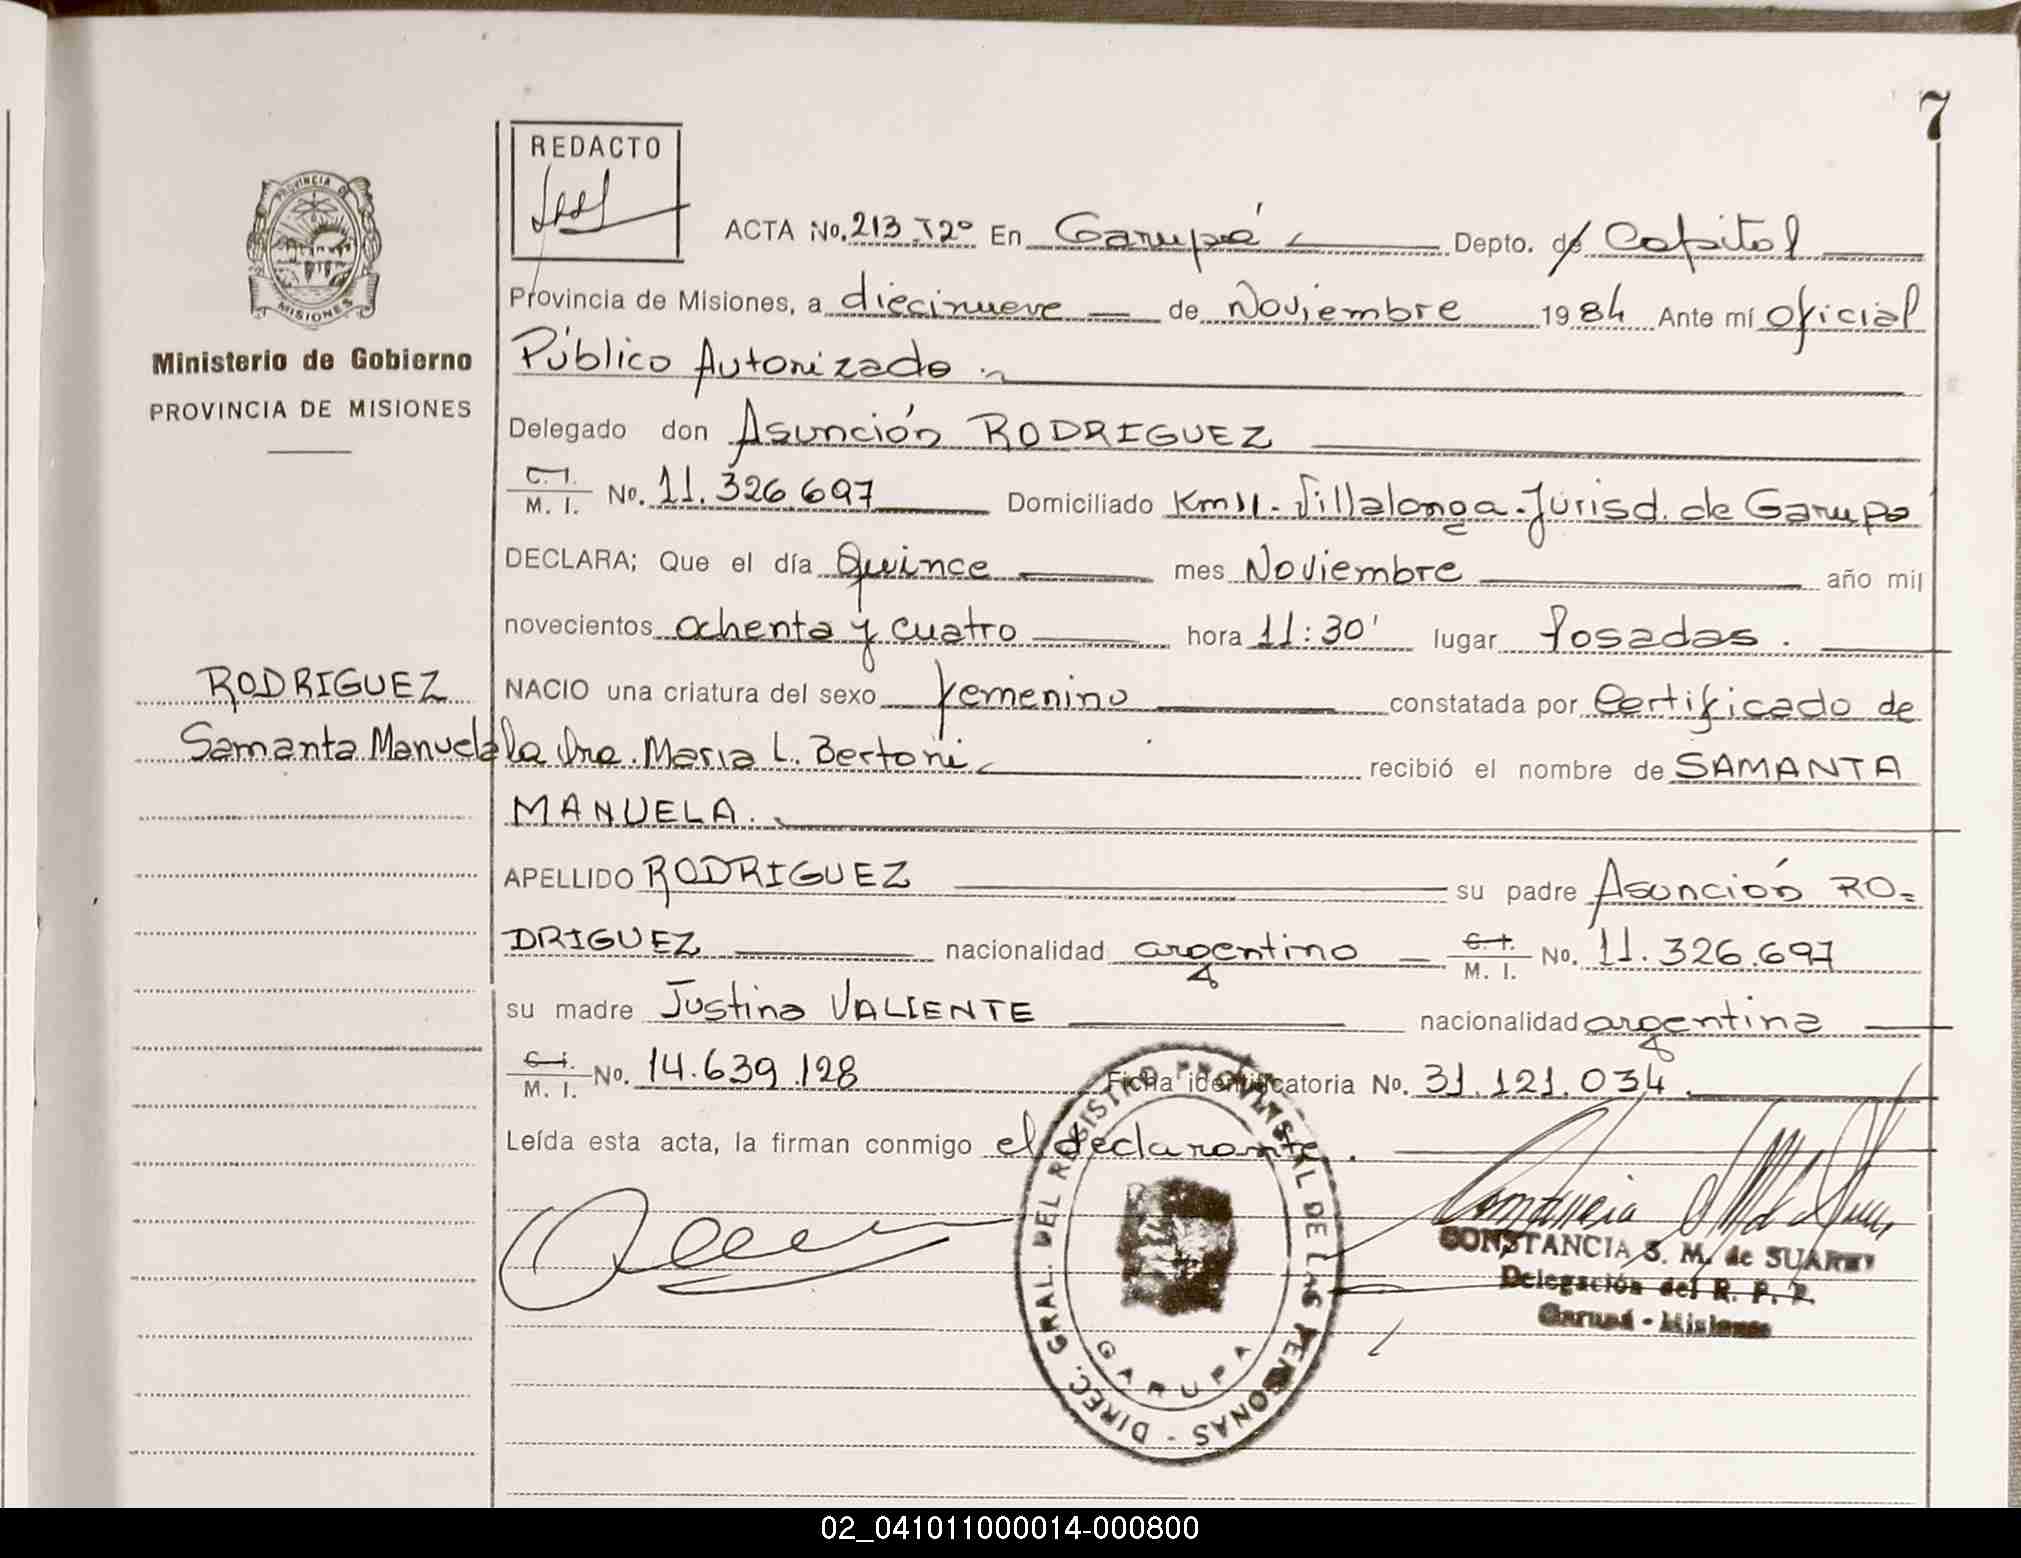 7
REDACTO
PROVINCIA DE
MISIONES
Ministerio de Gobierno
PROVINCIA DE MISIONES
ACTA No. 213 T2º En Garupá Depto. de Capital
Provincia de Misiones, a diecinueve de Noviembre 1984 Ante mí Oficial
Público Autorizado
Delegado don Asunción RODRIGUEZ
C. I. M. I. No. 11.326.697 Domiciliado Km 11 - Villalonga - Jurisd. de Garupá
DECLARA; Que el día Quince mes Noviembre año mil
novecientos ochenta y cuatro hora 11:30' lugar Posadas.
RODRIGUEZ
Samanta Manuela
NACIO una criatura del sexo femenino constatada por Certificado de
la Dra. Maria L. Bertoni recibió el nombre de SAMANTA
MANUELA.
APELLIDO RODRIGUEZ su padre Asunción RO=
DRIGUEZ nacionalidad argentino C. I. M. I. No. 11.326.697
su madre Justina VALIENTE nacionalidad argentina
C. I. M. I. No. 14.639.128 Ficha identificatoria No. 31.121.034
Leída esta acta, la firman conmigo el declarante.
DIREC. GRAL. DEL REGISTRO PROVINCIAL DE LAS PERSONAS -
GARUPA
CONSTANCIA S. M. de SUAREZ
Delegación del R. P. P.
Garupá - Misiones
02_041011000014-000800